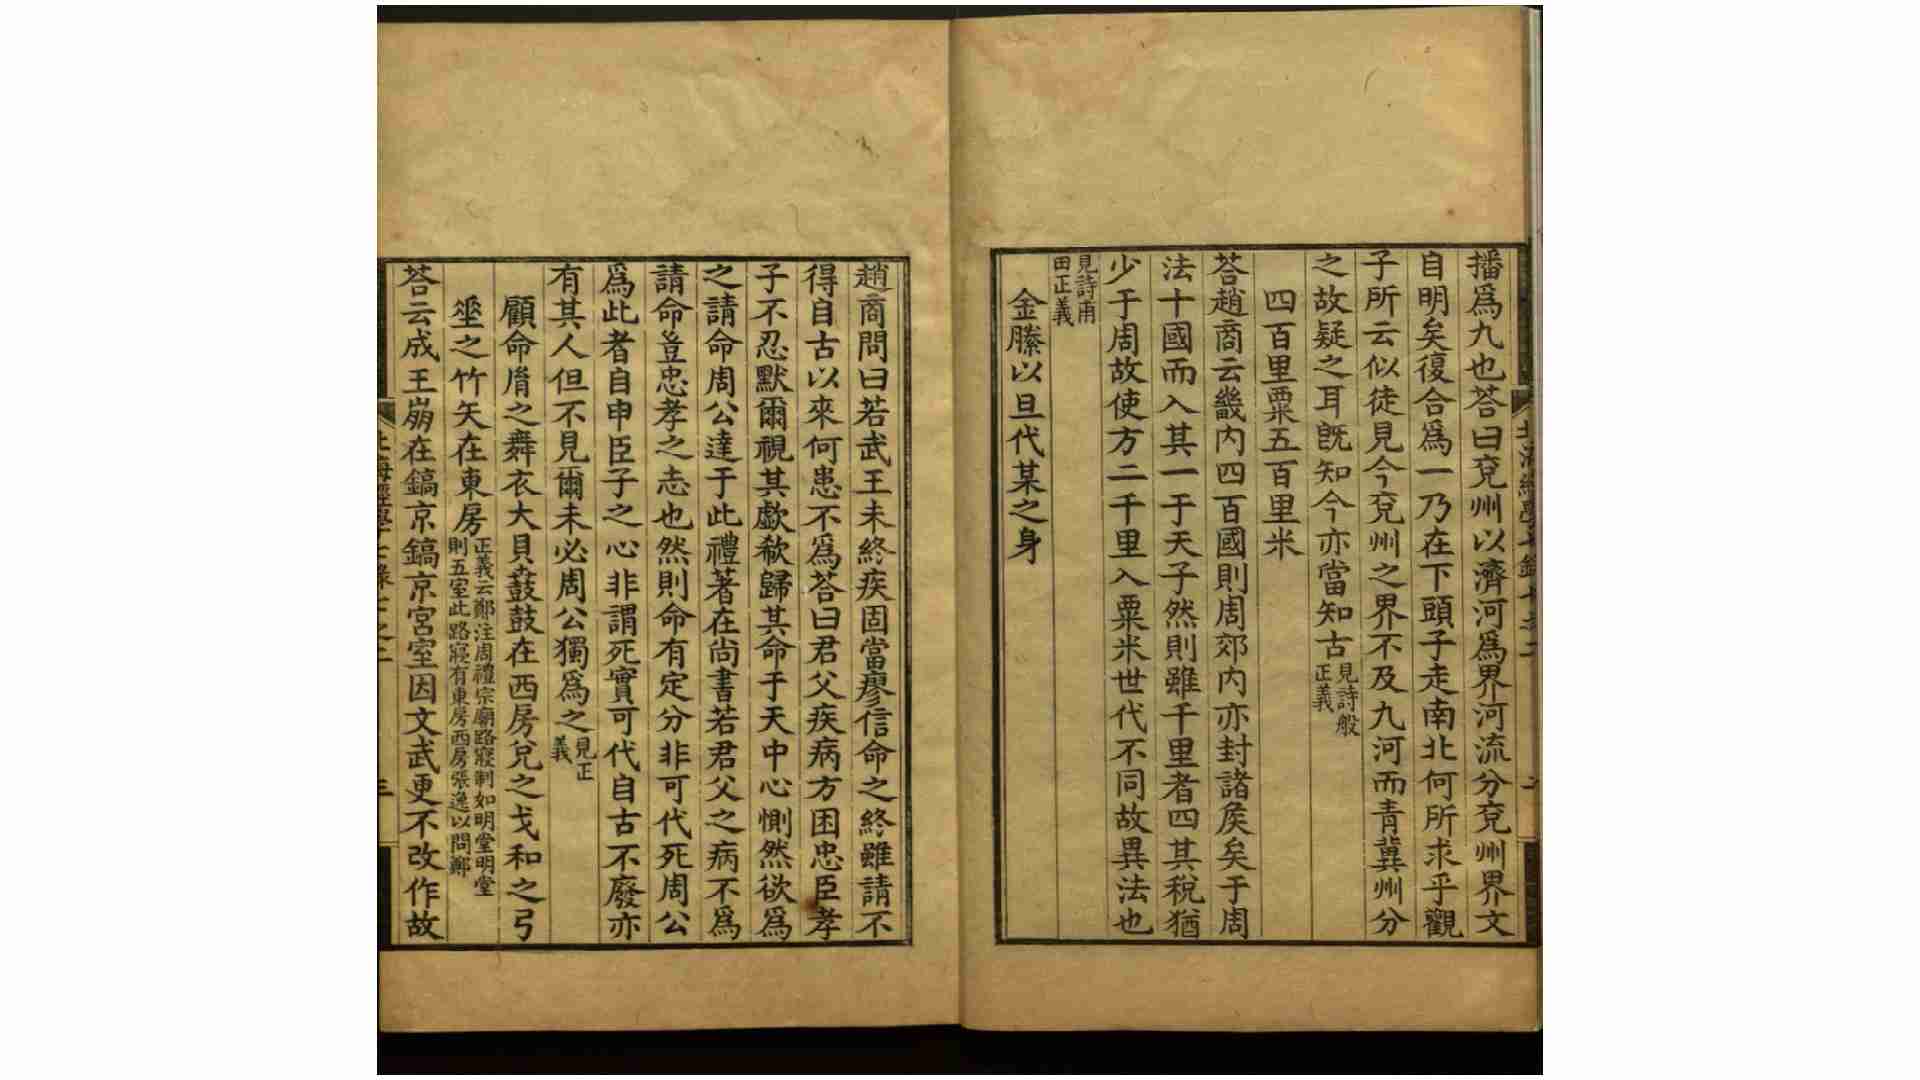 播爲九也荅曰兗州以濟河爲界河流分兗州界文
自明矣復合爲一乃在下頭子走南北何所求乎觀
子所云似徒見今兗州之界不及九河而青冀州分
之故疑之耳旣知今亦當知古見詩般
正義
四百里粟五百里米
荅趙商云畿内四百國則周郊内亦封諸矦矣于周
法十國而入其一于天子然則雖千里者四其稅猶
少于周故使方二千里入粟米世代不同故異法也
見詩甫
田正義
金縢以旦代某之身
趙商問曰若武王未終疾固當瘳信命之終雖請不
得自古以來何患不爲荅曰君父疾病方困忠臣孝
子不忍默爾視其歔欷歸其命于天中心惻然欲爲
之請命周公達于此禮著在尚書若君父之病不爲
請命豈忠孝之志也然則命有定分非可代死周公
爲此者自申臣子之心非謂死實可代自古不廢亦
有其人但不見爾未必周公獨爲之見正
義
顧命㣧之舞衣大貝鼖鼓在西房兌之戈和之弓
垂之竹矢在東房正義云鄭注周禮宗廟路寢制如明堂明堂
則五室此路寢有東房西房張逸以問鄭
荅云成王崩在鎬京鎬京宮室因文武更不改作故
北海經學七錄七之二
三